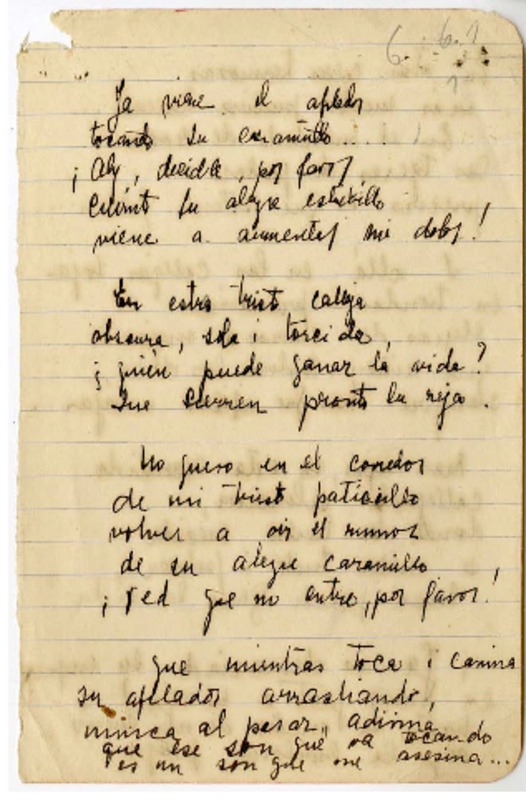 6. 6.1
Ya viene el afilador
tocando su caramillo....
¡Ay, decidle, por favor
cuánto su alegre estribillo
viene a aumentar mi dolor!
En esta triste calleja
obscura, sola i torcida,
¿quién puede ganar la vida?
Que cierren pronto la reja.
No quero en el corredor
de mi triste patiecillo
volver a oir el rumor
de su alegre caramillo
¡Ved que no entre, por favor!
que mientras toca i camina
su afilador arrastrando,
nunca al pasar, adivina
que ese son que va tocando
es un son que me asesina...